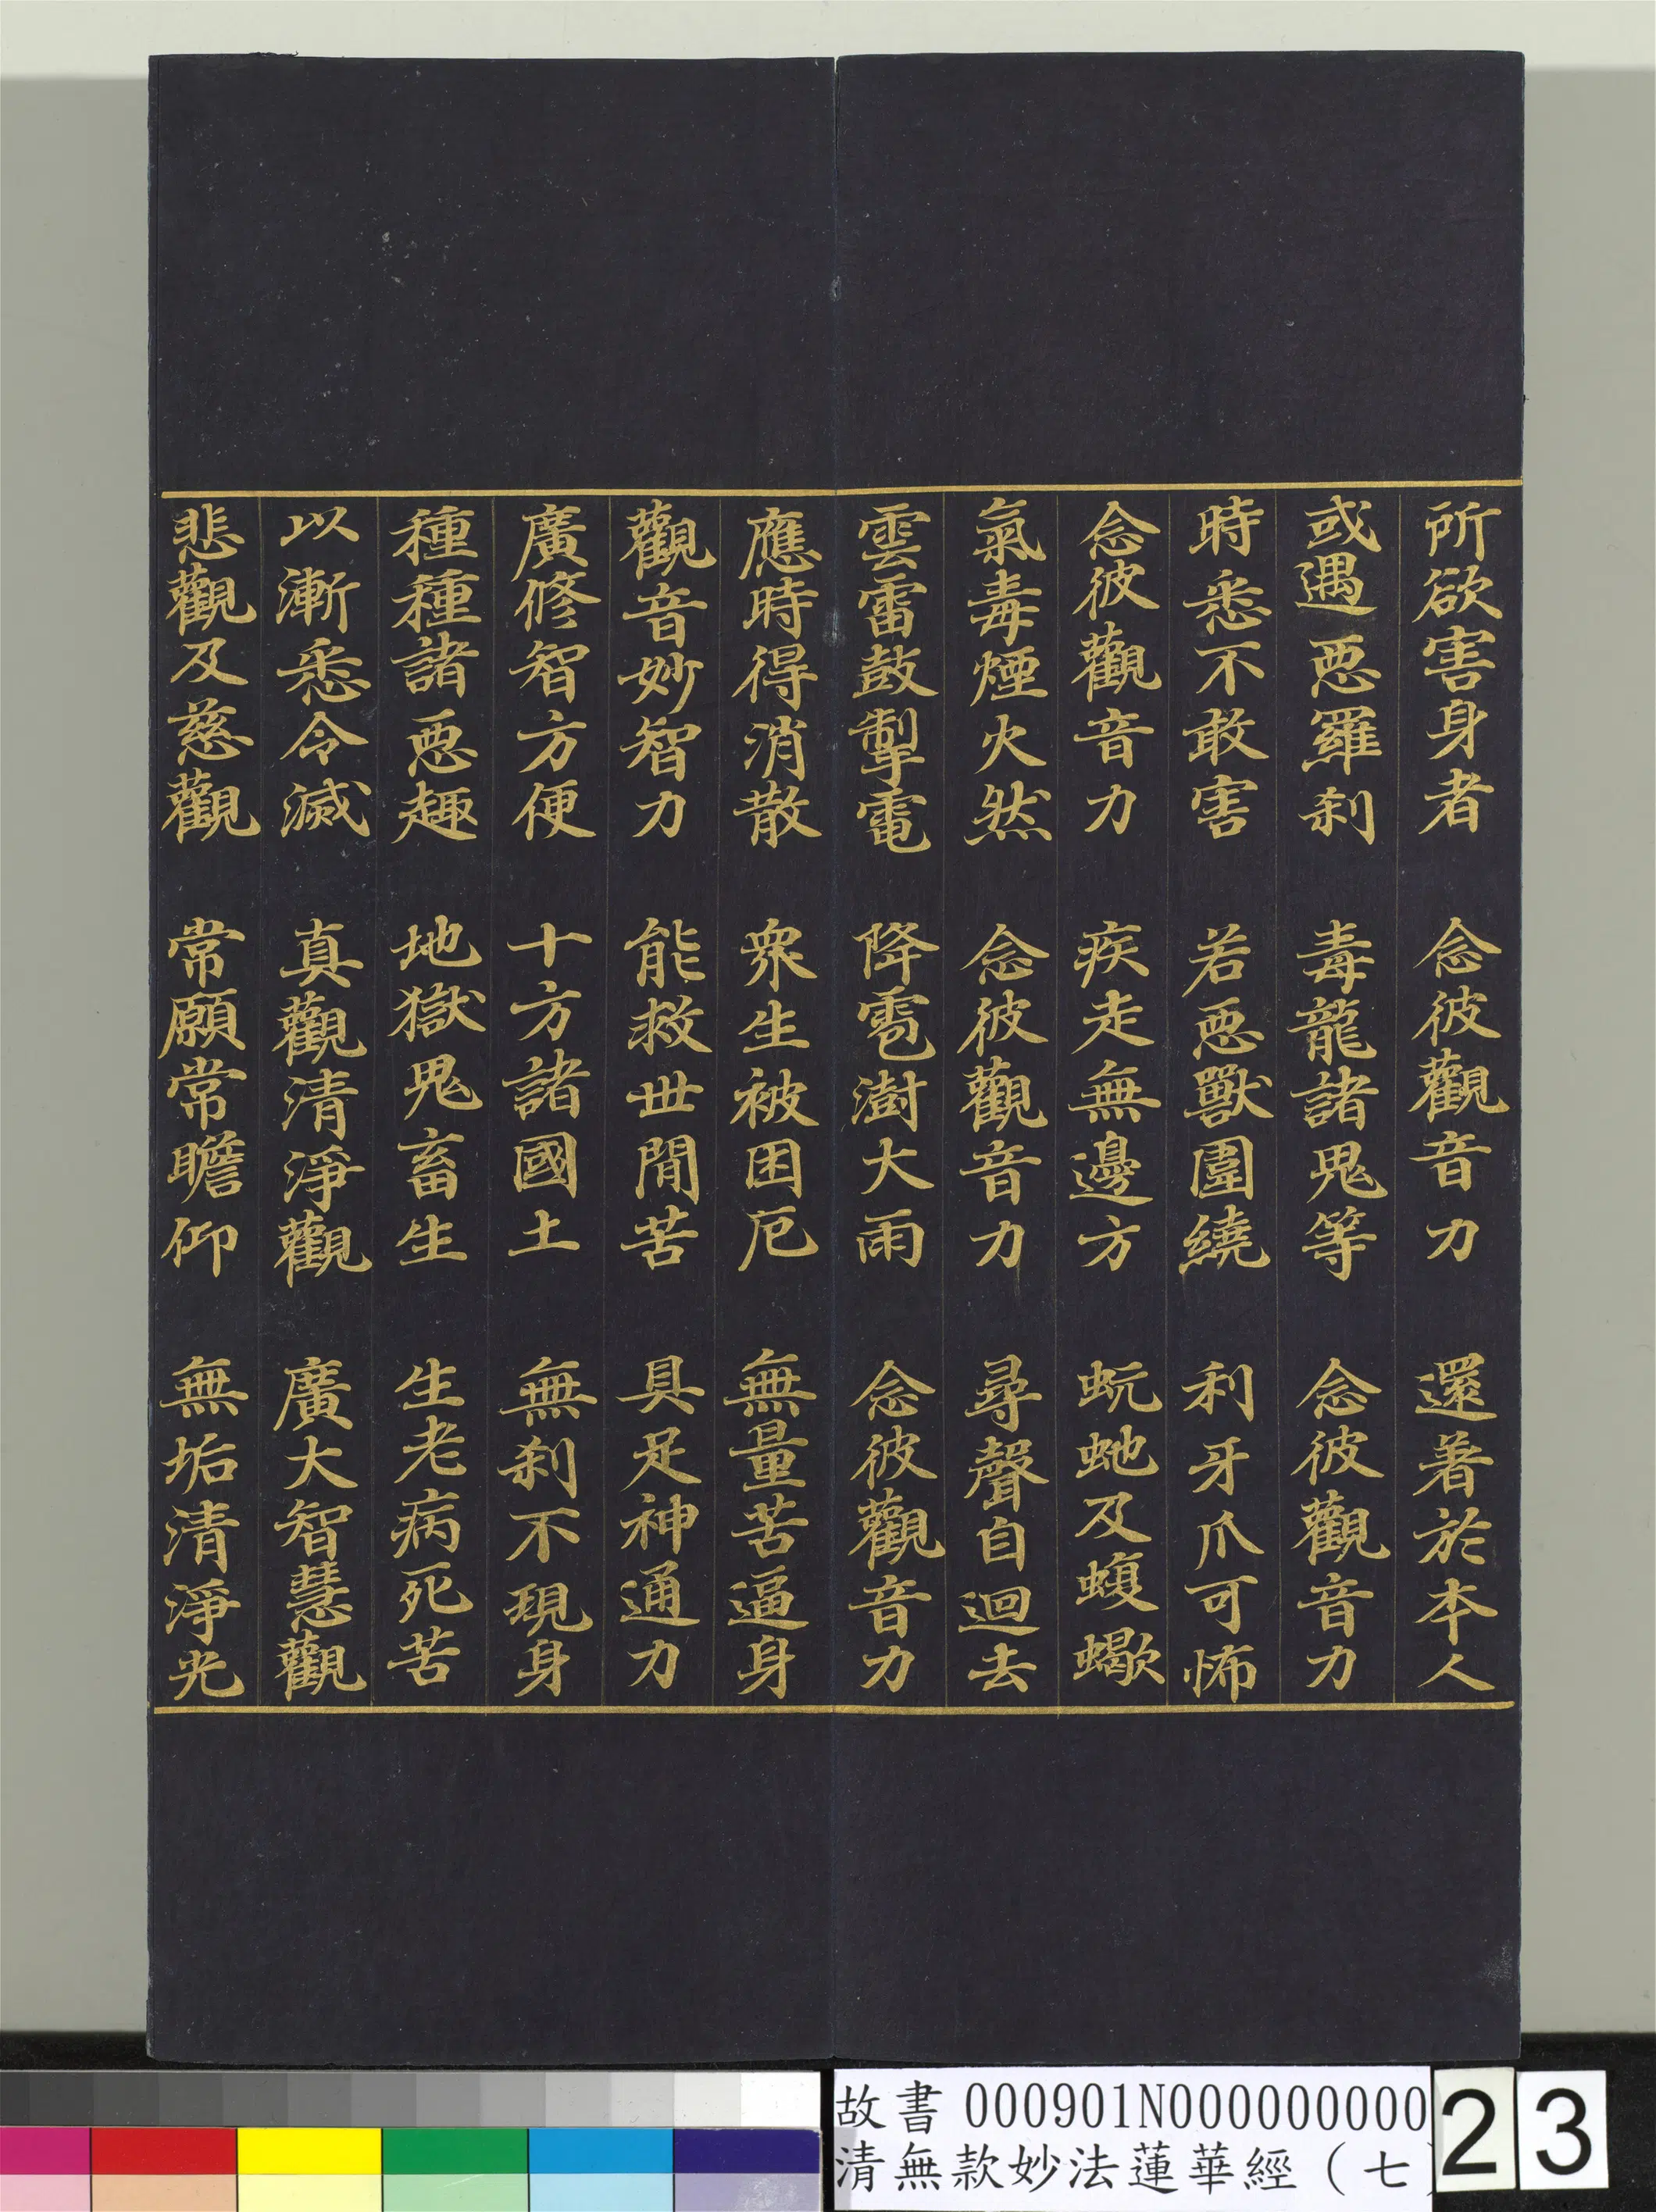 所欲害身者　念彼觀音力　還著於本人
或遇惡羅刹　毒龍諸鬼等　念彼觀音力
時悉不敢害　若惡獸圍繞　利牙爪可怖
念彼觀音力　疾走無邊方　蚖虵及蝮蠍
氣毒煙火然　念彼觀音力　尋聲自迴去
雲雷鼓掣電　降雹澍大雨　念彼觀音力
應時得消散　衆生被困厄　無量苦逼身
觀音妙智力　能救世閒苦　具足神通力
廣修智方便　十方諸國土　無刹不現身
種種諸惡趣　地獄鬼畜生　生老病死苦
以漸悉令滅　真觀清淨觀　廣大智慧觀
悲觀及慈觀　常願常瞻仰　無垢清淨光
故書 000901N000000000
清無款妙法蓮華經（七
23